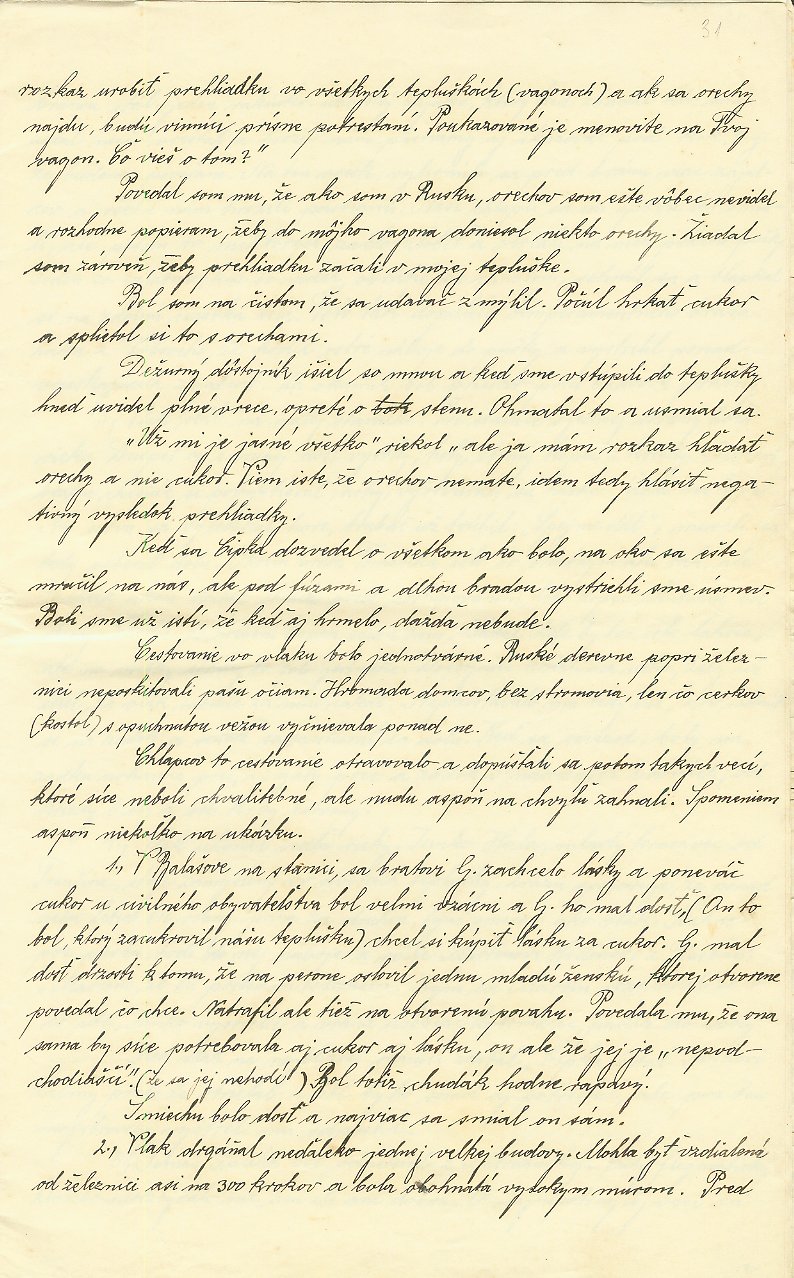 31
rozkaz urobiť prehliadku vo všetkych tepluškách (vagonoch) a ak sa orechy
najdu, budú vinníci prísne potrestaní. Poukazované je menovite na Tvoj
vagon. Čo vieš o tom?"
Povedal som mu, že ako som v Rusku, orechov som ešte vôbec nevidel
a rozhodne popieram, žeby do môjho vagona doniesol niekto orechy. Žiadal
som zároveň, žeby prehliadku začali v mojej tepluške.
Bol som na čistom, že sa udavač zmýlil. Počúl hrkať cukor
a splietol si to s orechami.
Dežurný dôstojník išiel so mnou a keď sme vstúpili do teplušky
hneď uvidel plné vrece, opreté o stenu. Ohmatal to a usmial sa.
„Už mi je jasné všetko" riekol „ale ja mám rozkaz hľadať
orechy a nie cukor. Viem iste, že orechov nemate, idem tedy hlásiť nega-
tivný vysledok prehliadky.
Keď sa Čipka dozvedel o všetkom ako bolo, na oko sa ešte
mračil na nás, ale pod fúzami a dlhou bradou vystriehli sme úsmev.
Boli sme už istí, že keď aj hrmelo, dažďa nebude.
Cestovanie vo vlaku bolo jednotvárné. Ruské derevne popri želez-
nici neposkitovali pašu očiam. Hromada domcov, bez stromovia, len čo cerkov
(kostol) s opuchnutou vežou vyčnievala ponad ne.
Chlapcov to cestovanie otravovalo a dopúšťali sa potom takych vecí,
ktoré síce neboli chvalitebné, ale nudu aspoň na chvyľu zahnali. Spomeniem
aspoň niekoľko na ukázku.
1., V Balašove na stanici, sa bratovi G. zachcelo lásky a poneváč
cukor u civilného obyvateľstva bol velmi vzácni a G. ho mal dosť, (On to
bol, ktorý zacukrovil nášu teplušku) chcel si kúpiť lásku za cukor. G. mal
dosť drzosti k tomu, že na perone oslovil jednu mladú ženskú, ktorej otvorene
povedal čo chce. Natrafil ale tiež na otvorenú povahu. Povedala mu, že ona
sama by síce potrebovala aj cukor aj lásku, on ale že jej je „nepod-
chodiaščí". (že sa jej nehodí) Bol totiž chudák hodne rapavý.
Smiechu bolo dosť a najviac sa smial on sám.
2., Vlak drgáňal neďaleko jednej velkej budovy. Mohla byť vzdialená
od železnici asi na 300 krokov a bola obohnatá vysokym múrom. Pred